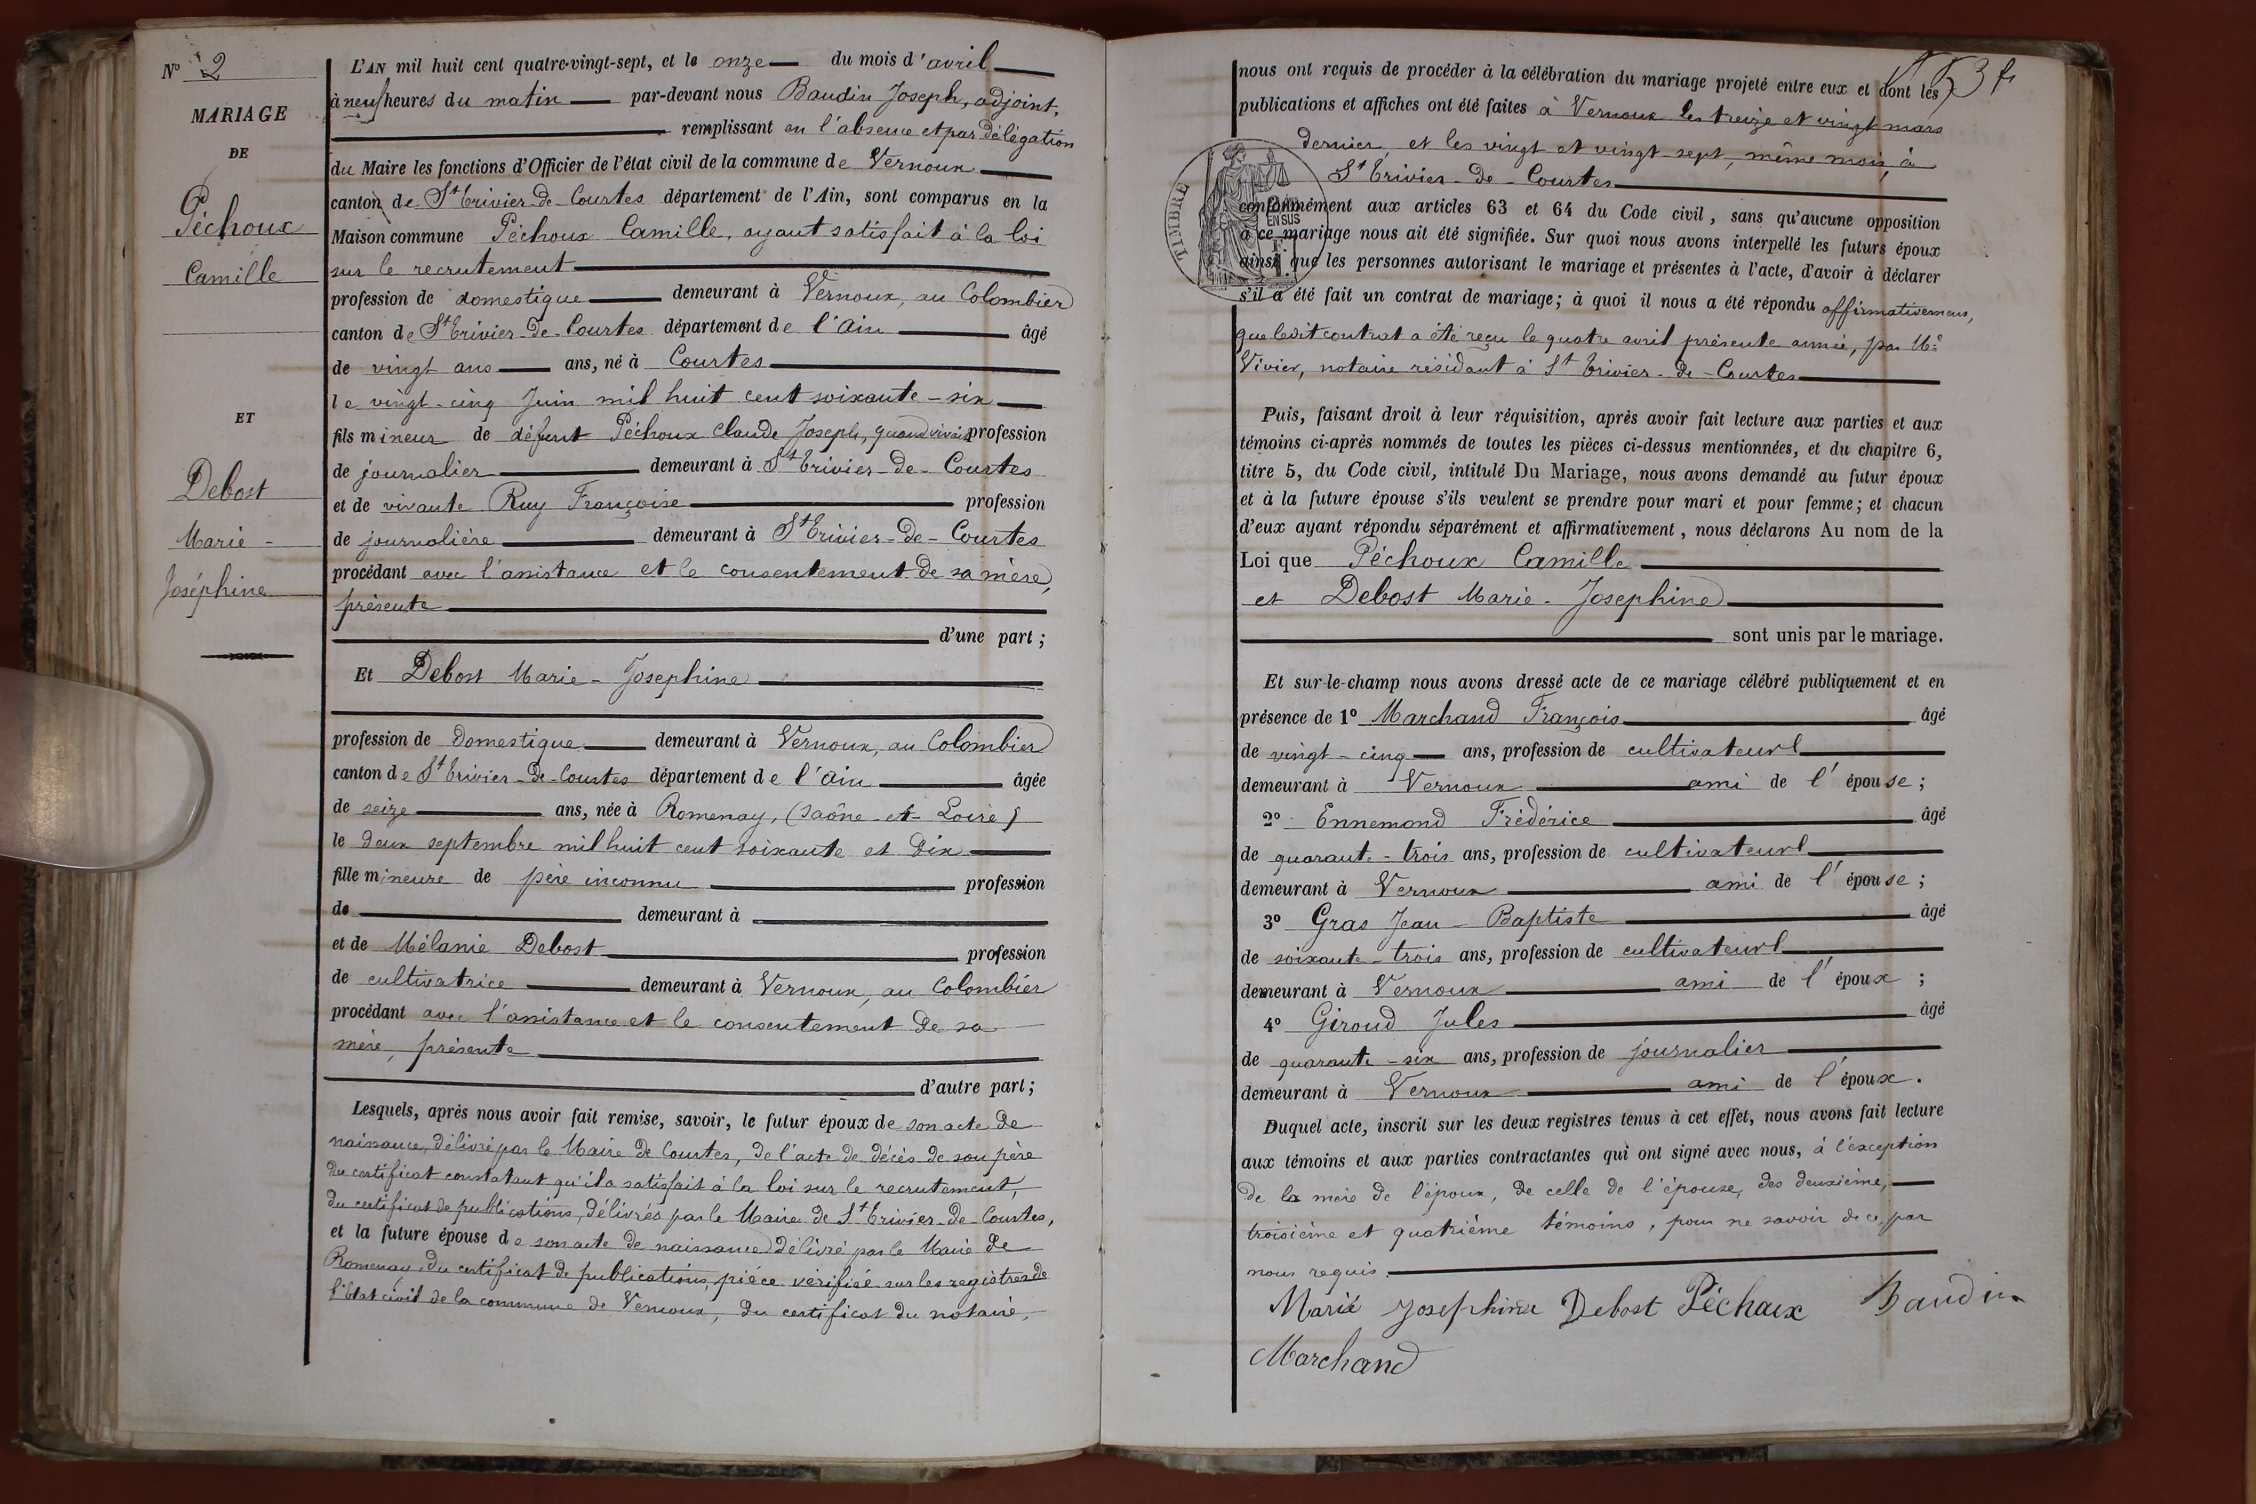 N° 2
MARIAGE
DE
Péchoux
Camille
ET
Debost
Marie -
Joséphine
L'AN mil huit cent quatre-vingt-sept, et le onze du mois d'avril
à neuf heures du matin par-devant nous Baudin Joseph, adjoint,
remplissant en l'absence et par délégation
du Maire les fonctions d'Officier de l'état civil de la commune de Vernoux
canton de St Trivier-de-Courtes département de l'Ain, sont comparus en la
Maison commune Péchoux Camille, ayant satisfait à la loi
sur le recrutement
profession de domestique demeurant à Vernoux, au Colombier
canton de St Trivier-de-Courtes département de l'Ain âgé
de vingt ans ans, né à Courtes
le vingt-cinq Juin mil huit cent soixante-six
fils mineur de défunt Péchoux Claude Joseph, quand vivait profession
de journalier demeurant à St Trivier-de-Courtes
et de vivante Ruy Françoise profession
de journalière demeurant à St Trivier-de-Courtes
procédant avec l'assistance et le consentement de sa mère,
présente
d'une part ;
Et Debost Marie-Josephine
profession de domestique demeurant à Vernoux, au Colombier
canton de St Trivier-de-Courtes département de l'Ain âgée
de seize ans, née à Romenay, (Saône-et-Loire)
le deux septembre mil huit cent soixante et dix
fille mineure de père inconnu profession
de demeurant à
et de Mélanie Debost profession
de cultivatrice demeurant à Vernoux, au Colombier
procédant avec l'assistance et le consentement de sa
mère, présente
d'autre part ;
Lesquels, après nous avoir fait remise, savoir, le futur époux de son acte de
naissance, délivré par le Maire de Courtes, de l'acte de décès de son père
du certificat constatant qu'il a satisfait à la loi sur le recrutement,
du certificat de publications, délivrés par le Maire de St Trivier-de-Courtes,
et la future épouse de son acte de naissance délivré par le Maire de
Romenay, du certificat de publications, pièce vérifiée sur les registres de
l'état civil de la commune de Vernoux, du certificat du notaire,
53
nous ont requis de procéder à la célébration du mariage projeté entre eux et dont les
publications et affiches ont été faites à Vernoux les treize et vingt mars
dernier, et les vingt et vingt sept, même mois, à
St Trivier-de-Courtes
TIMBRE
EN SUS
conformément aux articles 63 et 64 du Code civil, sans qu'aucune opposition
à ce mariage nous ait été signifiée. Sur quoi nous avons interpellé les futurs époux
ainsi que les personnes autorisant le mariage et présentes à l'acte, d'avoir à déclarer
s'il a été fait un contrat de mariage; à quoi il nous a été répondu affirmativement,
que ledit contrat a été reçu le quatre avril présente année, par Me
Vivier, notaire résidant à St Trivier-de-Courtes
Puis, faisant droit à leur réquisition, après avoir fait lecture aux parties et aux
témoins ci-après nommés de toutes les pièces ci-dessus mentionnées, et du chapitre 6,
titre 5, du Code civil, intitulé Du Mariage, nous avons demandé au futur époux
et à la future épouse s'ils veulent se prendre pour mari et pour femme; et chacun
d'eux ayant répondu séparément et affirmativement, nous déclarons Au nom de la
Loi que Péchoux Camille
et Debost Marie-Josephine
sont unis par le mariage.
Et sur-le-champ nous avons dressé acte de ce mariage célébré publiquement et en
présence de 1° Marchand François âgé
de vingt-cinq ans, profession de cultivateur
demeurant à Vernoux ami de l'épouse ;
2° Ennemond Frédérice âgé
de quarante-trois ans, profession de cultivateur
demeurant à Vernoux ami de l'épouse ;
3° Gras Jean-Baptiste âgé
de soixante-trois ans, profession de cultivateur
demeurant à Vernoux ami de l'époux ;
4° Giroud Jules âgé
de quarante-six ans, profession de journalier
demeurant à Vernoux ami de l'époux.
Duquel acte, inscrit sur les deux registres tenus à cet effet, nous avons fait lecture
aux témoins et aux parties contractantes qui ont signé avec nous, à l'exception
de la mère de l'époux, de celle de l'épouse, des deuxième,
troisième et quatrième témoins, pour ne savoir de ce par
nous requis.
Marie Josephine Debost Péchoux Baudin
Marchand